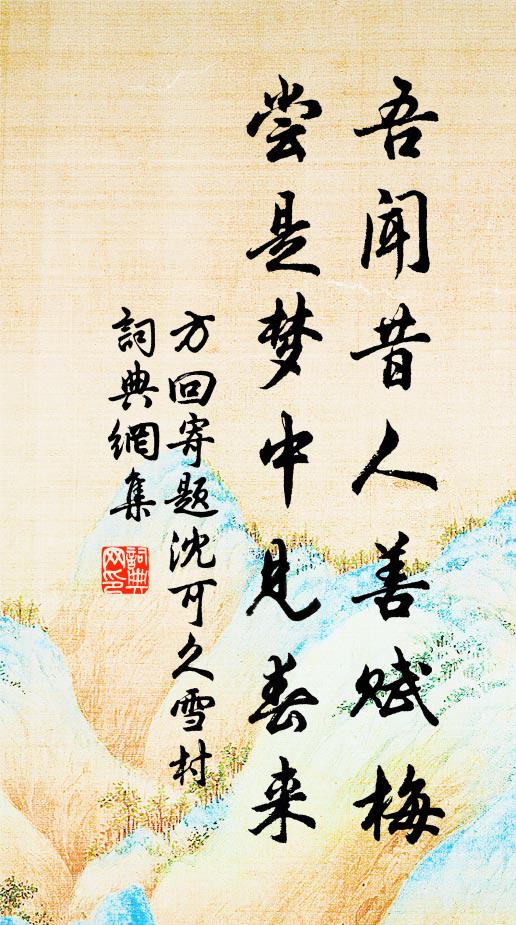 吾闻昔人善赋梅
尝是梦中见春来
方回寄题沈可久雪村
詞典網集
詞典
网印